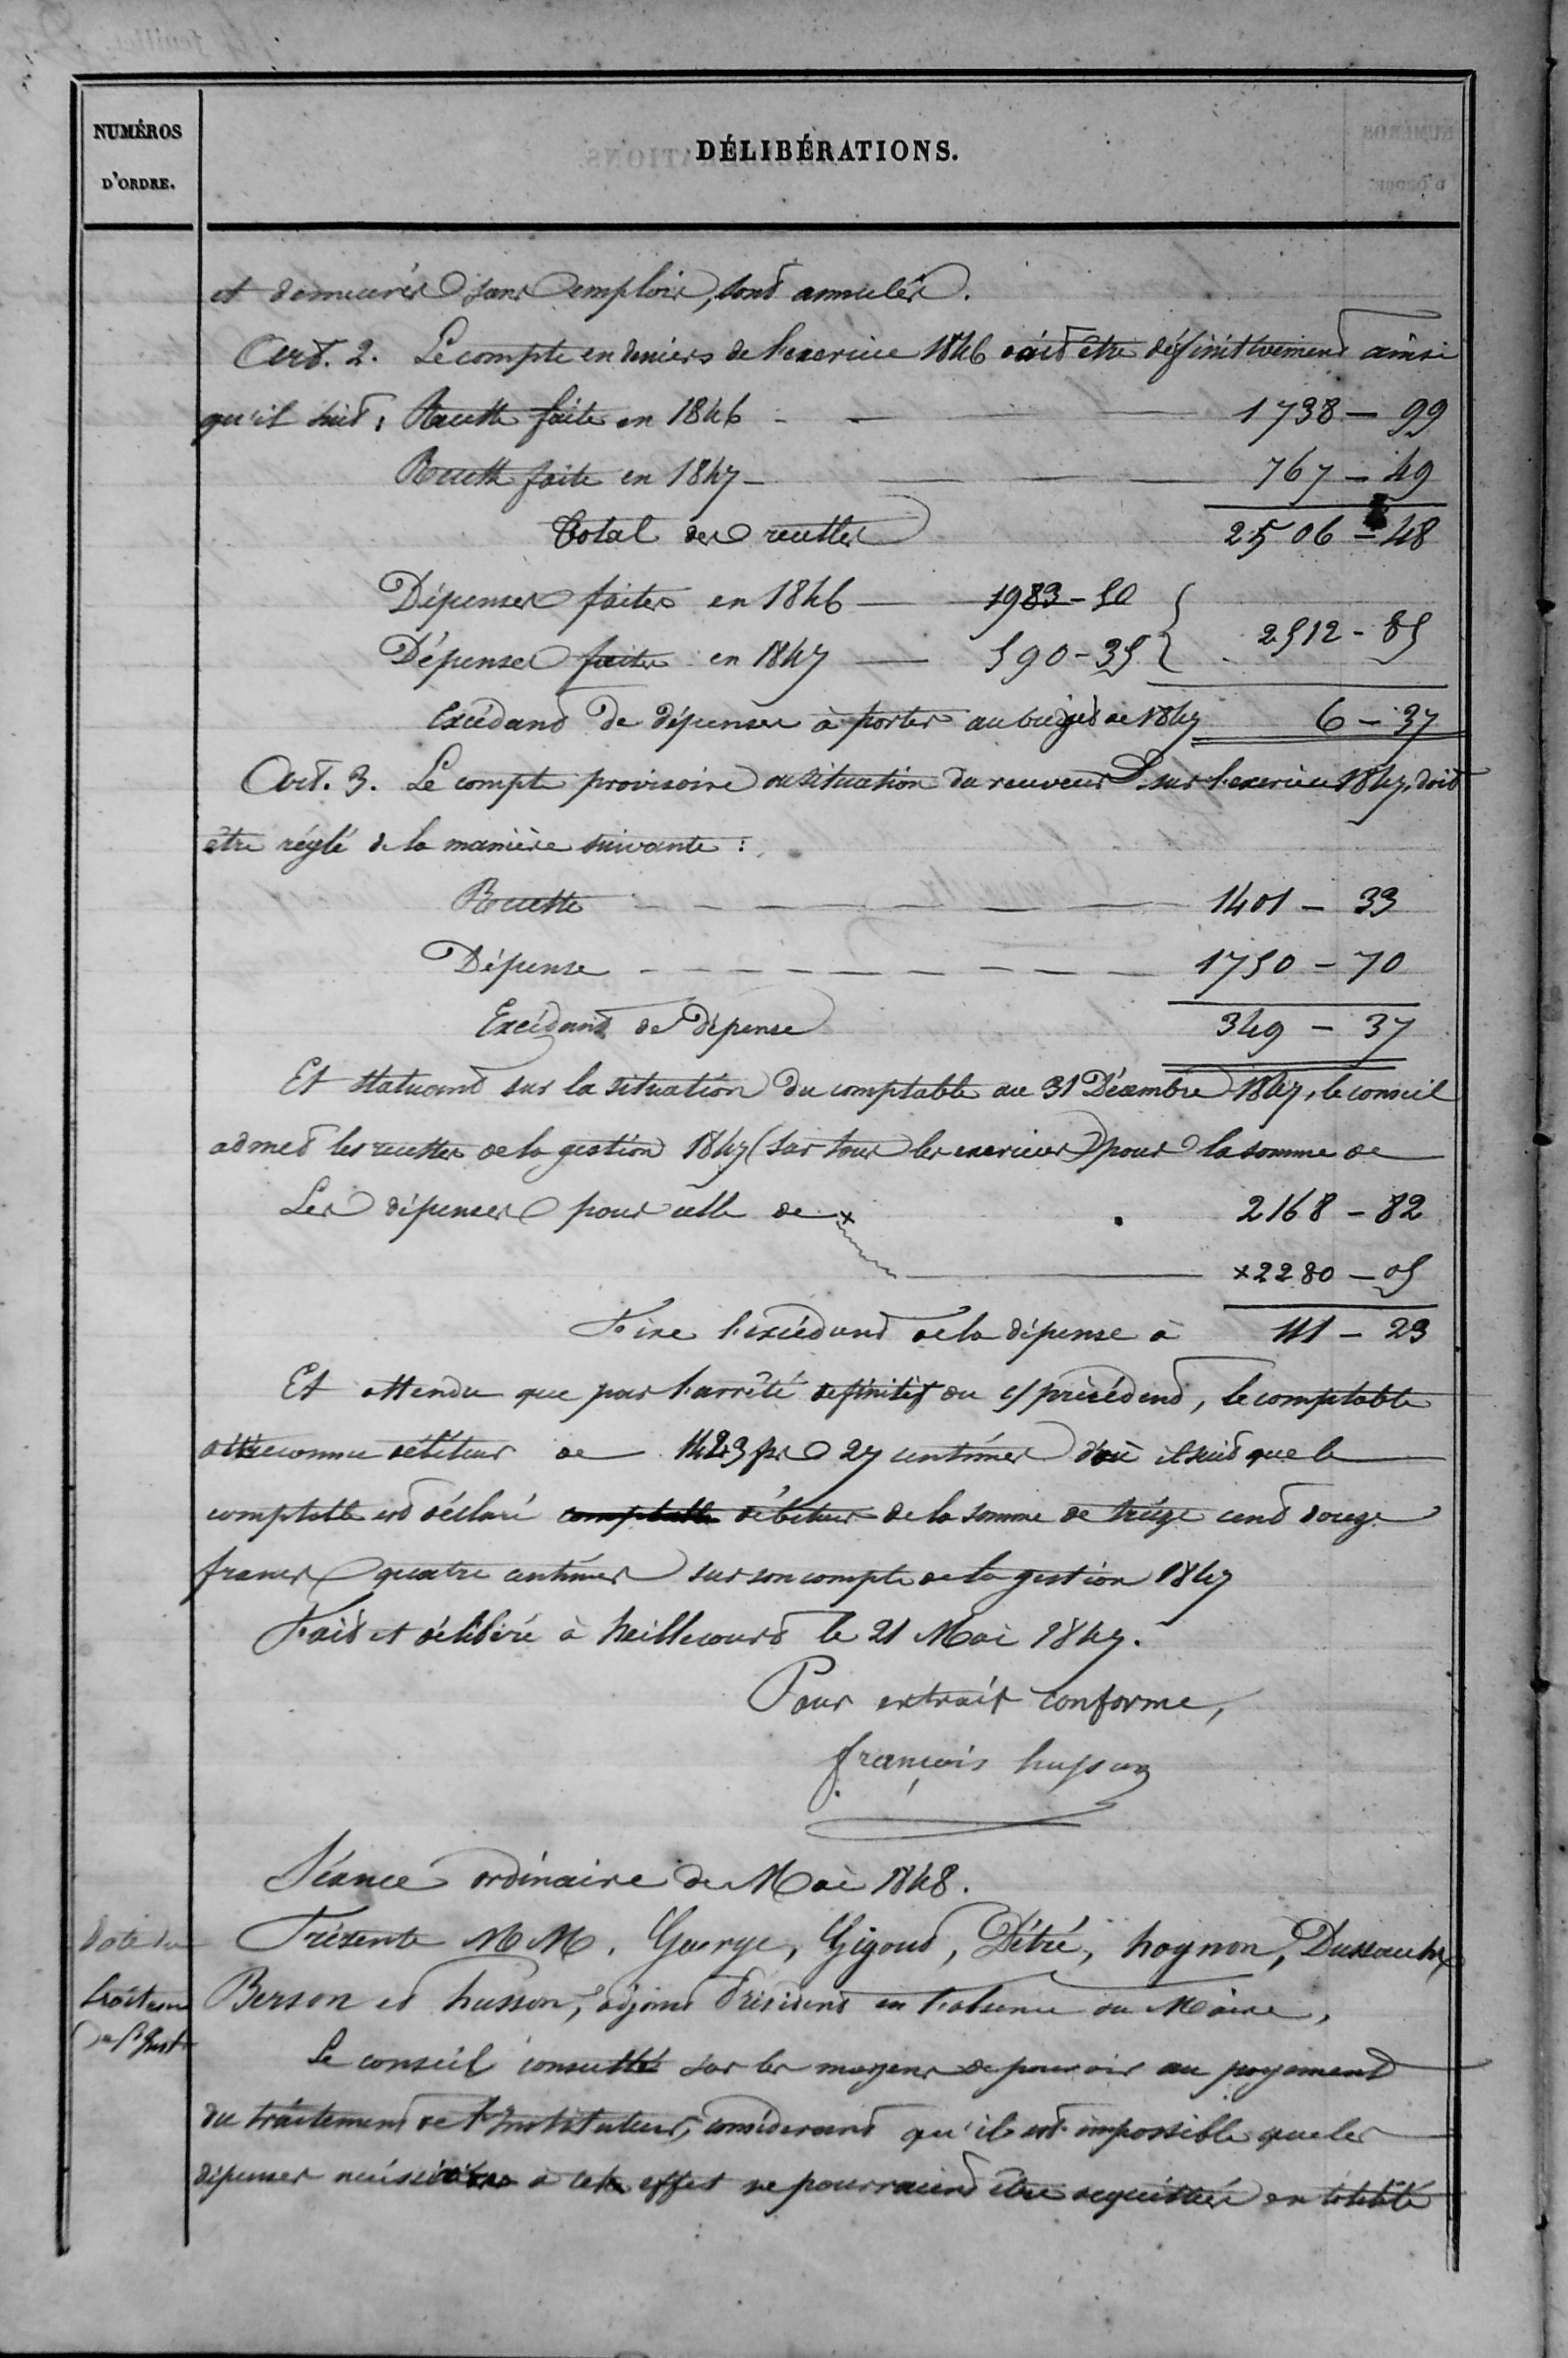 NUMÉROS
D'ORDRE.
DÉLIBÉRATIONS.
et demeurés sans emplois, sont annulés.
Art. 2. Le compte en deniers de l'exercice 1846 doit être définitivement ainsi
qu'il suit: Recette faite en 1846 - — 1738 — 99
Recette faite en 1847 — 767 — 49
Total des recettes 2506 — 48
Dépenses faites en 1846 — 1983 - 50
2512 - 85
Dépenses faites en 1847 — 590 - 35
Excédant de dépenses à porter au budget de 1847 6 — 37
Art. 3. Le compte provisoire ou situation du receveur sur l'exercice 1847, doit
être réglé de la manière suivante:
Recette — 1401 — 33
Dépense — 1750 — 70
Excédant de dépense 349 — 37
Et statuant sur la situation du comptable au 31 Décembre 1847, le conseil
admet les recettes de la gestion 1847 (sur tous les exercices) pour la somme de
Les dépenses pour celle de x 2168 — 82
x 2280 — 05
Fixe l'excédant de la dépense à 111 — 23
Et attendu que par l'arrêté définitif du c/ précédent, le comptable
a été reconnu débiteur de 1423 frs 27 centimes d'où il suit que le
comptable est déclaré comptable débiteur de la somme de treize cent douze
francs quatre centimes sur son compte de la gestion 1847
Fait et délibéré à heillecourt le 21 Mai 1847.
Pour extrait conforme,
françois husson
Séance ordinaire de Mai 1848.
Présents MM. George, Gigout, Détré, hognon, Dussaulx,
Berson et husson, adjoint Président en l'absence du Maire,
Vote du
traitem
de l'Inst
Le conseil consulté sur les moyens de pourvoir au payement
du traitement de l'Instituteur, considérant qu'il est impossible que les
dépenses nécessaires à cet effet ne pourraient être acquittée en totalité